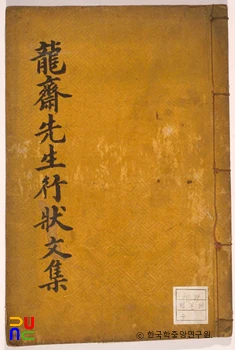 龍齋先生行狀文集
© 한국학중앙연구원